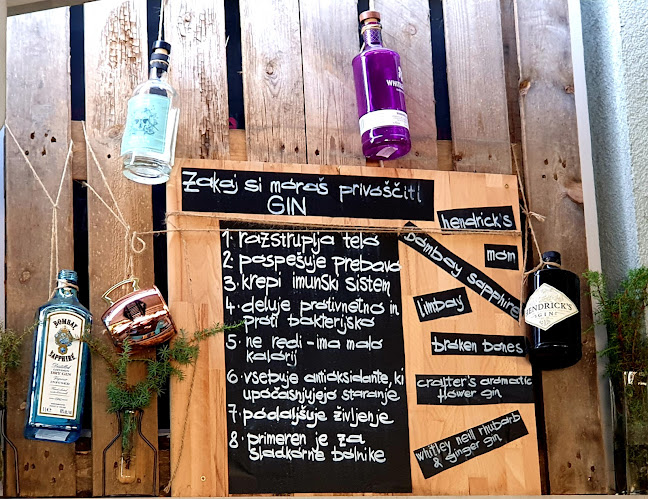 Zakaj si moraš privoščiti
GIN
1 razstruplja telo
2 pospešuje prebavo
3. krepi imunski sistem
4. deluje protivnetno in
proti bakterijsko
5. ne redi - ima malo
kalorij
6 vsebuje antioksidante, ki
upočasnjujejo staranje
7 podaljšuje življenje
8 primeren je za
sladkorne bolnike
hendrick's
mom
bombay sapphire
limbay
broken bones
crafter's aromatic
flower gin
whitley neill rhubarb
& ginger gin
BOMBAY
SAPPHIRE
HENDRICK'S
GIN